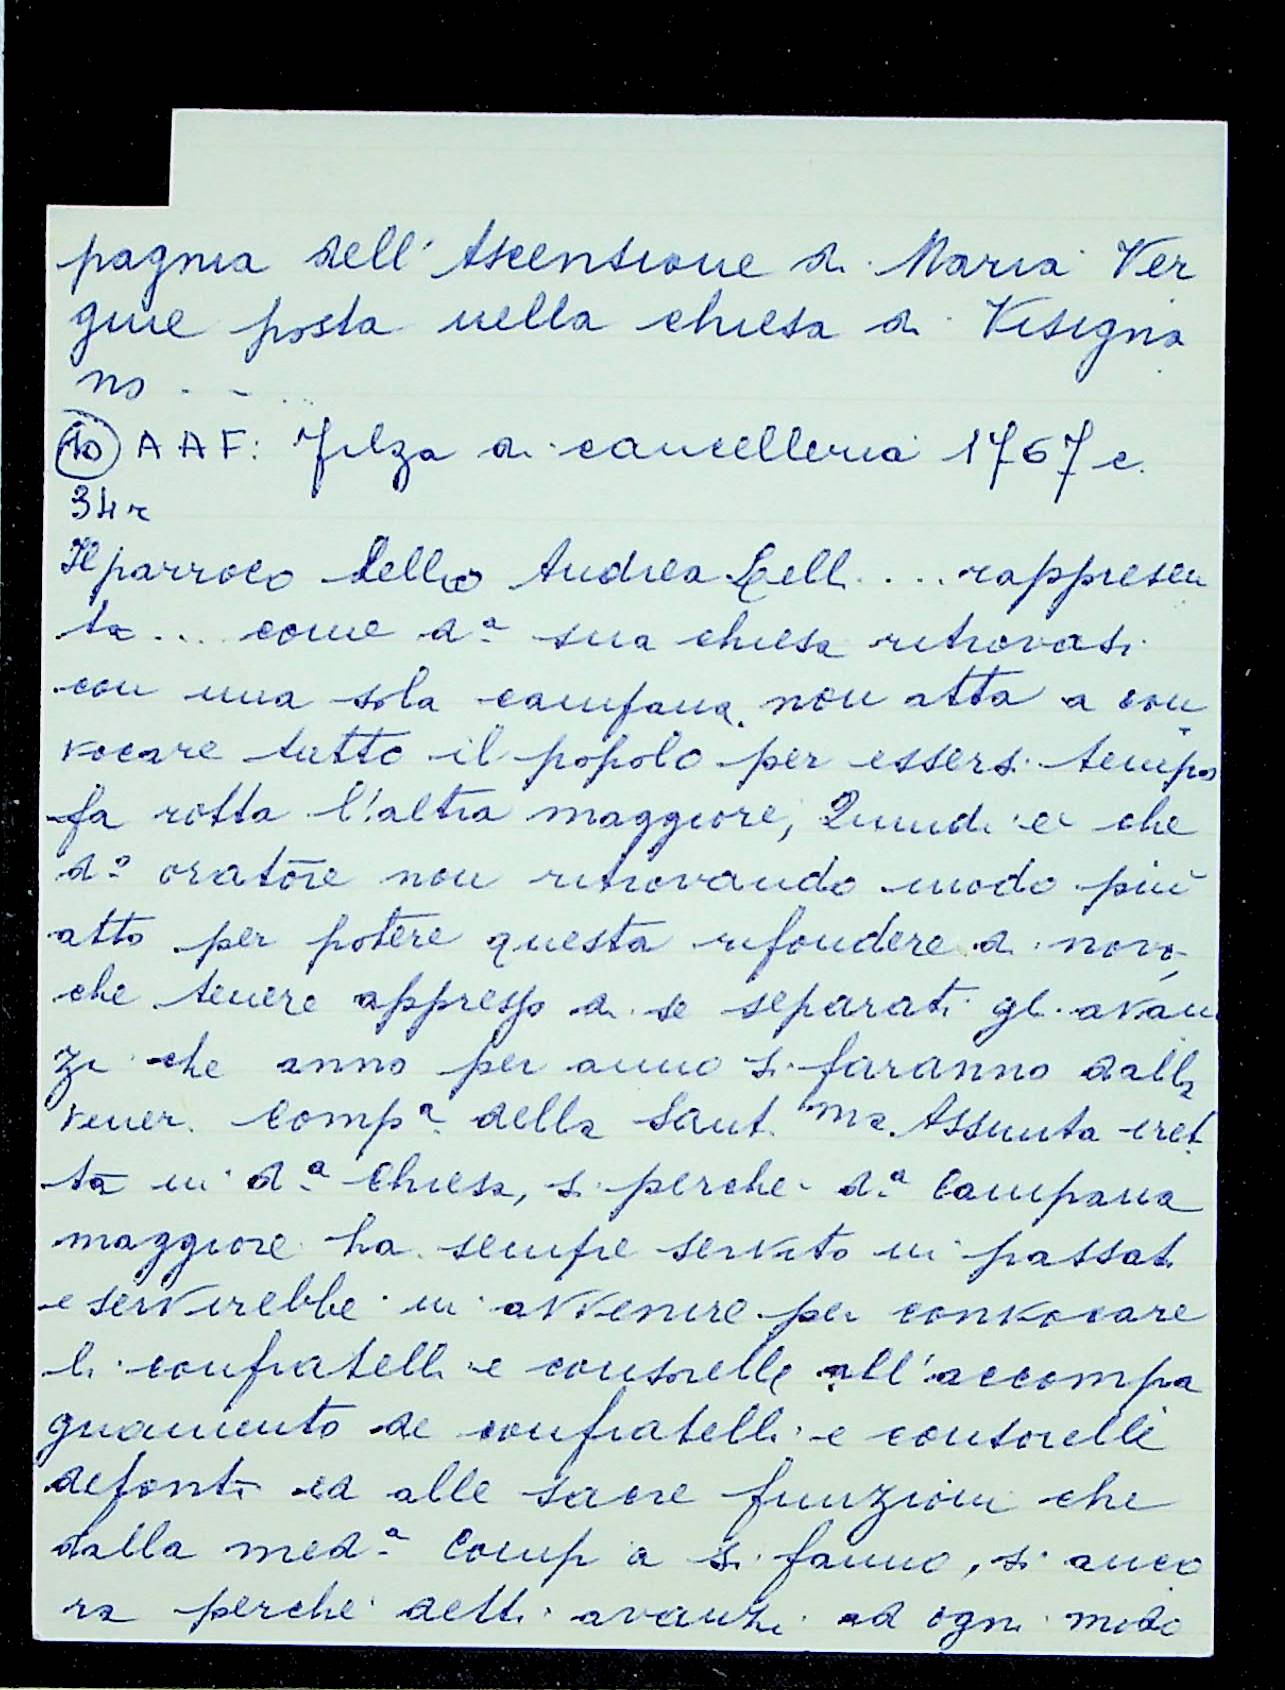 pagnia dell'Ascensione di Maria Ver
gine posta nella chiesa di Visigna
no - - ...
10 AAF: Filza di cancelleria 1767 c.
34r
Il parroco Lelio Andrea Lelli .... rappresen
ta ... come d.a sua chiesa ritrovasi
con una sola campana non atta a con
vocare tutto il popolo per essersi tempo
fa rotta l'altra maggiore, Quindi è che
d.o oratore non ritrovando modo più
atto per potere questa rifondere di novo,
che tenere appresso di se separati gli avan
zi che anno per anno si faranno dalla
vener. Comp.a della Sant.ma Assunta eret
ta in d.a Chiesa, si perche d.a Campana
maggiore ha sempre servito in passat.
e servirebbe in avvenire per convocare
li confratelli e consorelle all'accompa
gnamento de confratelli e consorelle
defonti ed alle sacre funzioni che
dalla med.a Comp a si fanno, si anco
ra perche detti avanzi ad ogni modo